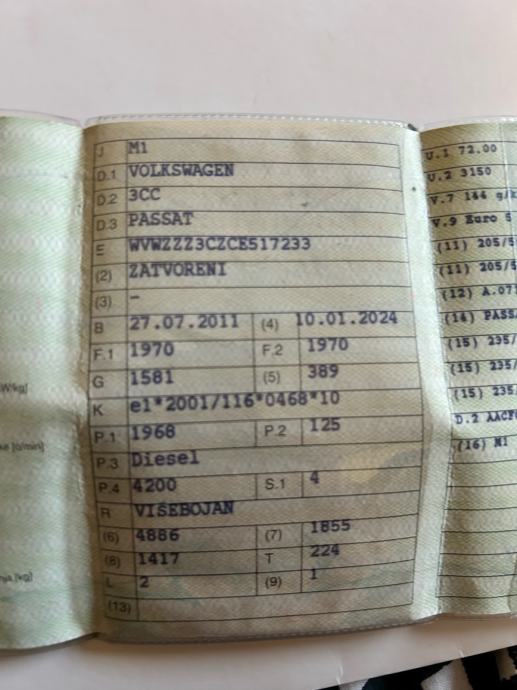 J M1
D.1 VOLKSWAGEN
D.2 3CC
D.3 PASSAT
E WVWZZZ3CZCE517233
(2) ZATVORENI
(3) –
B 27.07.2011 (4) 10.01.2024
F.1 1970 F.2 1970
G 1581 (5) 389
K e1*2001/116*0468*10
P.1 1968 P.2 125
P.3 Diesel
P.4 4200 S.1 4
R VIŠEBOJAN
(6) 4886 (7) 1855
(8) 1417 T 224
L 2 (9) 1
(13)
U.1 72.00
U.2 3150
V.7 144 g/k
V.9 Euro 5
(11) 205/5
(11) 205/5
(12) A.07
(14) PASS
(15) 235/
(15) 235/
(15) 235/
D.2 AACF
(16) M1
W/kg]
[o/min]
[kg]